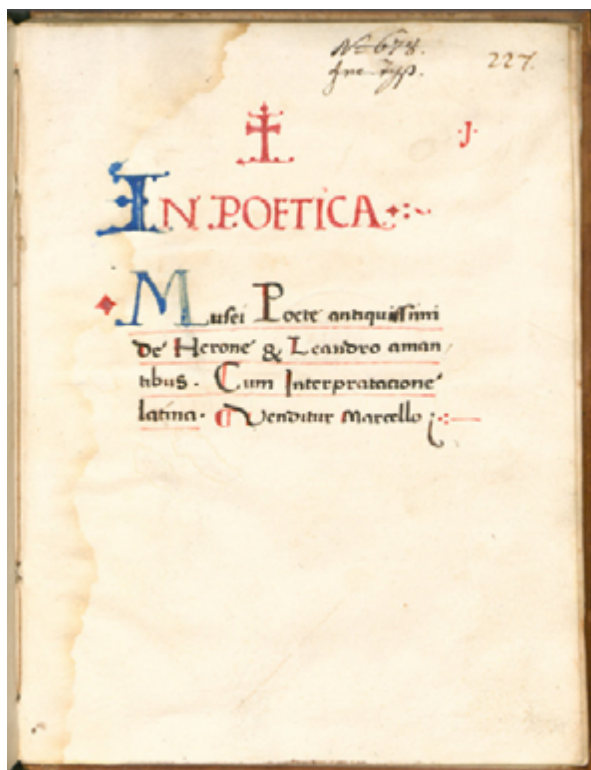 N° 678.
Inc. Typ.
227.
·J·
IN. POETICA
Musei Poete antiquissimi
de Herone & Leandro aman
tibus. Cum Interpratatione
latina. Venditur Marcello